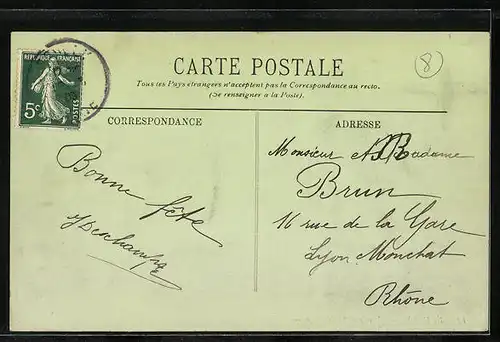 CARTE POSTALE
Tous les Pays étrangers n'acceptent pas la Correspondance au recto.
(Se renseigner à la Poste).
8
REPUBLIQUE FRANÇAISE
5c
POSTES
CORRESPONDANCE
Bonne fête
JDeschamps
ADRESSE
Monsieur Madame
Brun
16 rue de la Gare
Lyon Monchat
Rhône